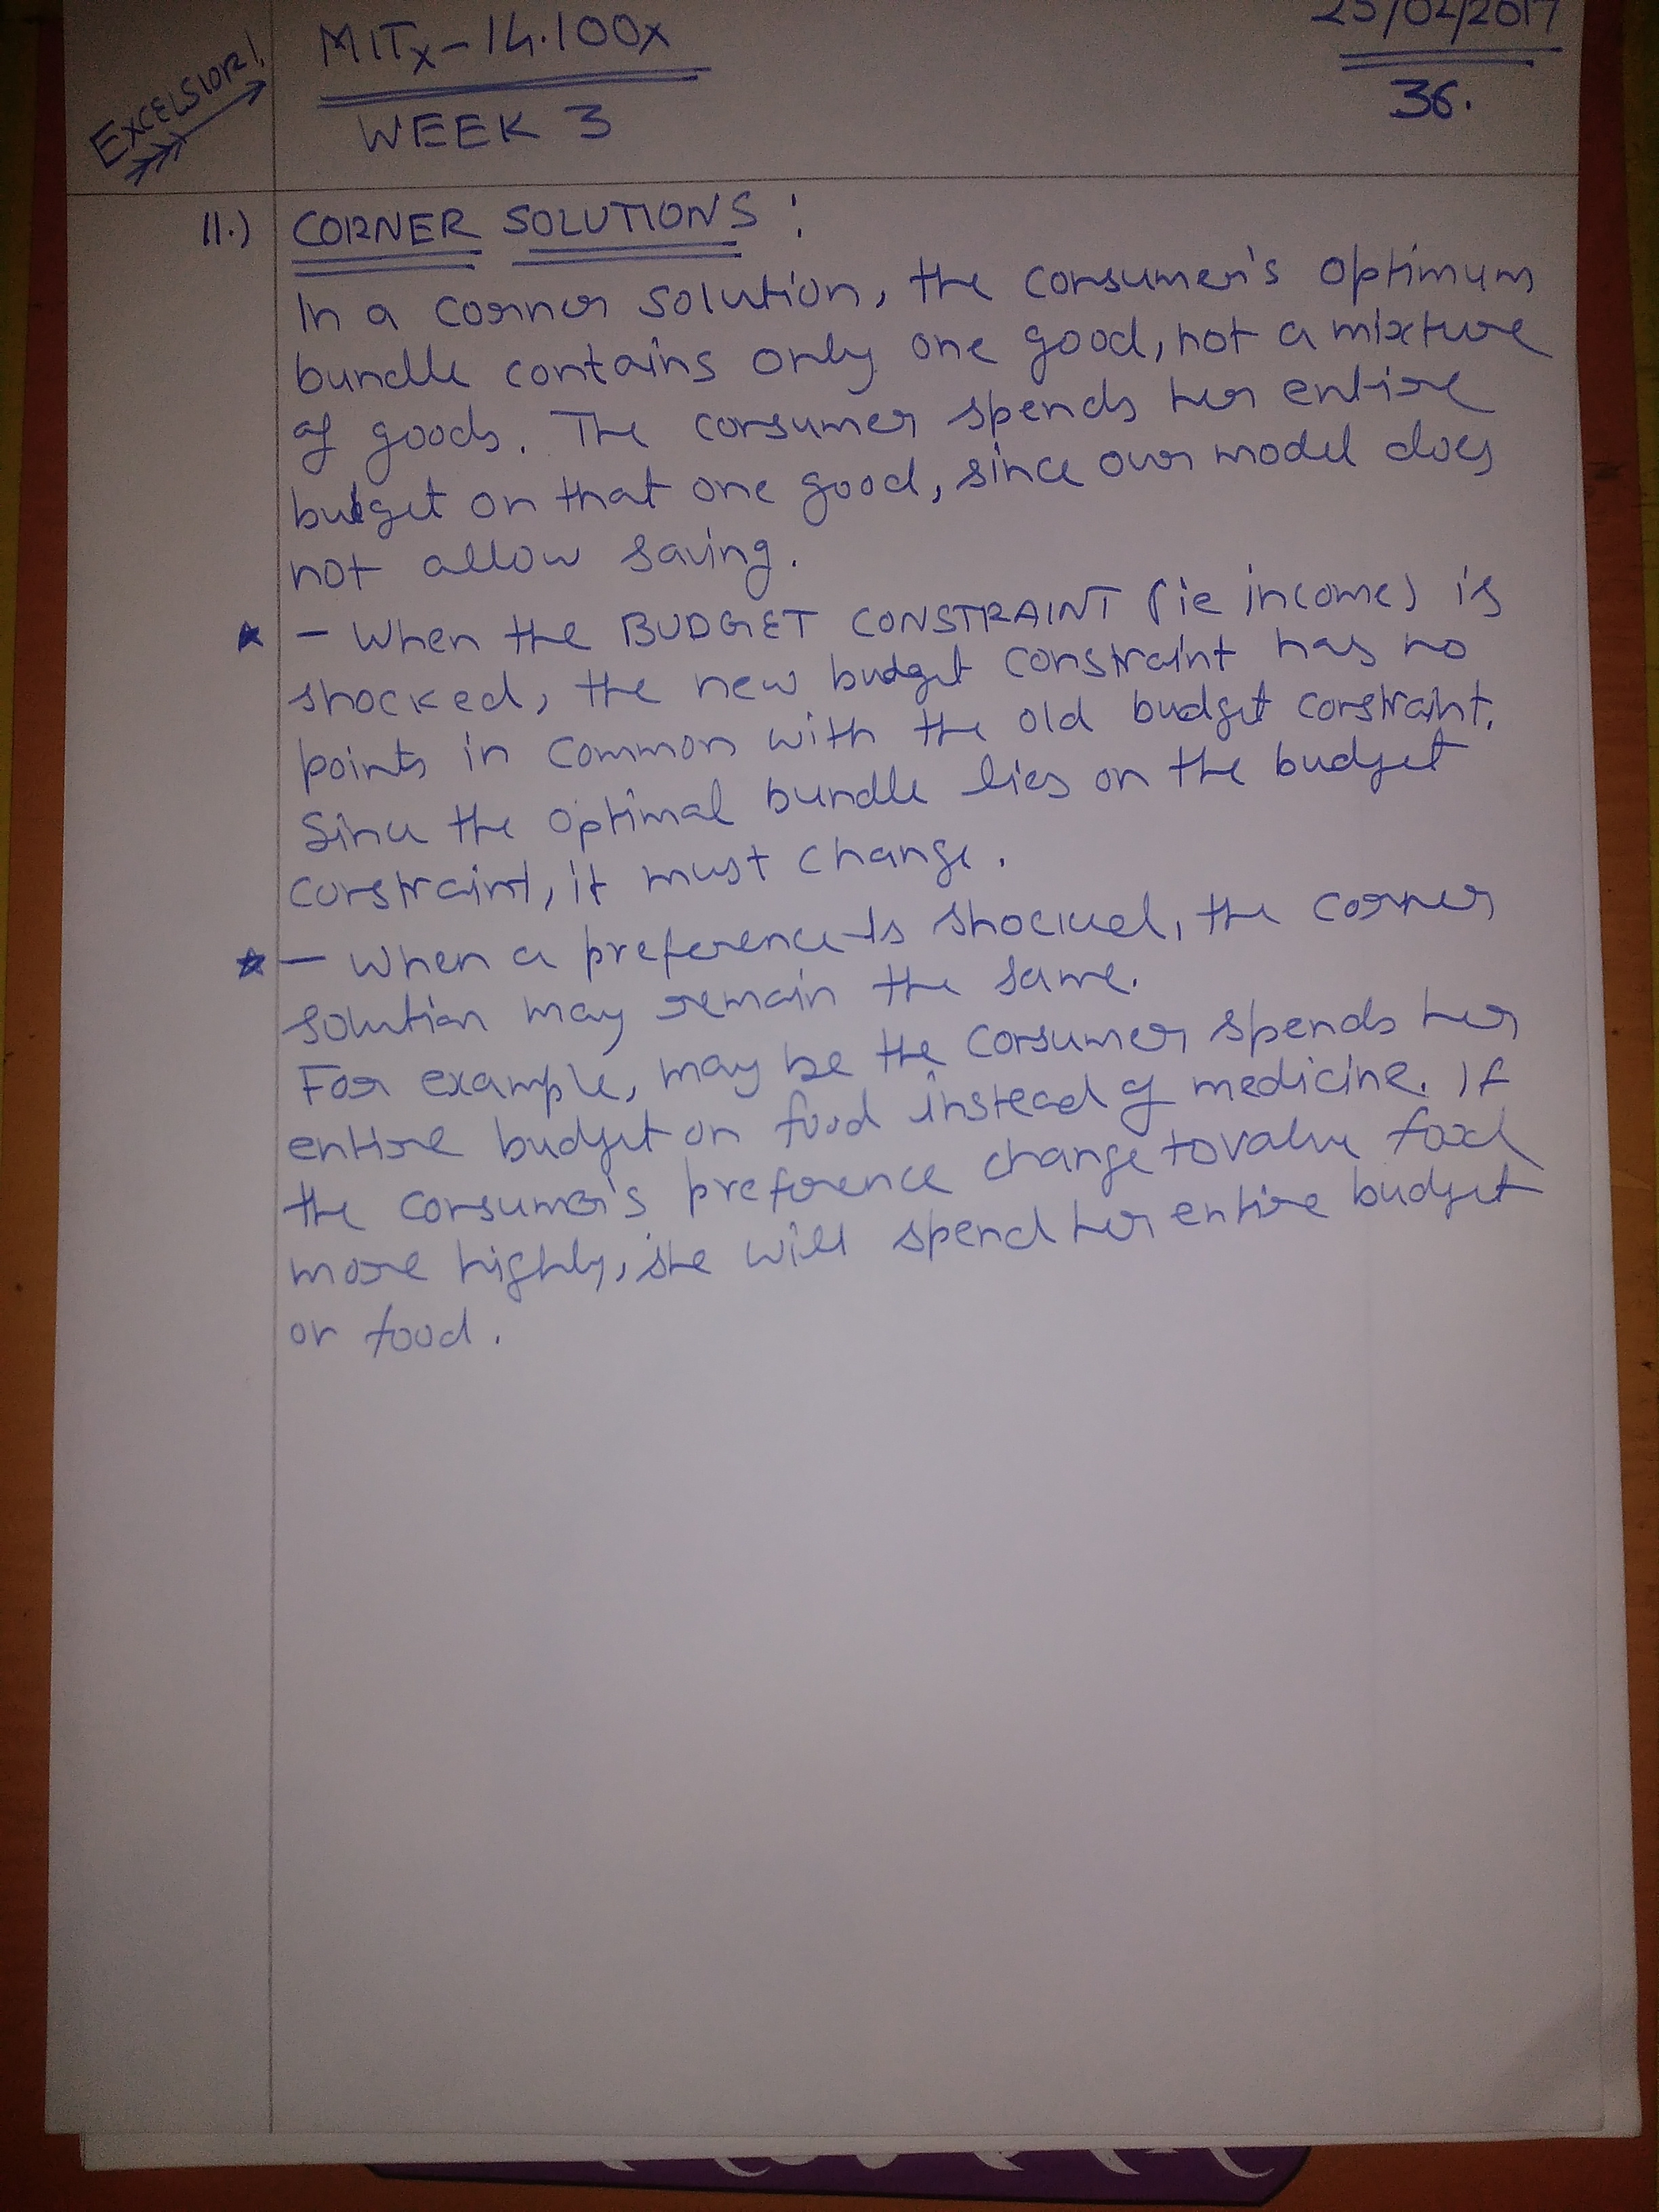 EXCELSIOR!
MITx - 14.100x
25/02/2017
WEEK 3
36.
11.) CORNER SOLUTIONS:
In a corner solution, the consumer's optimum
bundle contains only one good, not a mixture
of goods. The consumer spends her entire
budget on that one good, since our model does
not allow saving.
★ - When the BUDGET CONSTRAINT (ie income) is
shocked, the new budget constraint has no
points in common with the old budget constraint.
Since the optimal bundle lies on the budget
constraint, it must change.
★ - When a preference is shocked, the corner
solution may remain the same.
For example, may be the consumer spends her
entire budget on food instead of medicine. If
the consumer's preference change to value food
more highly, she will spend her entire budget
on food.